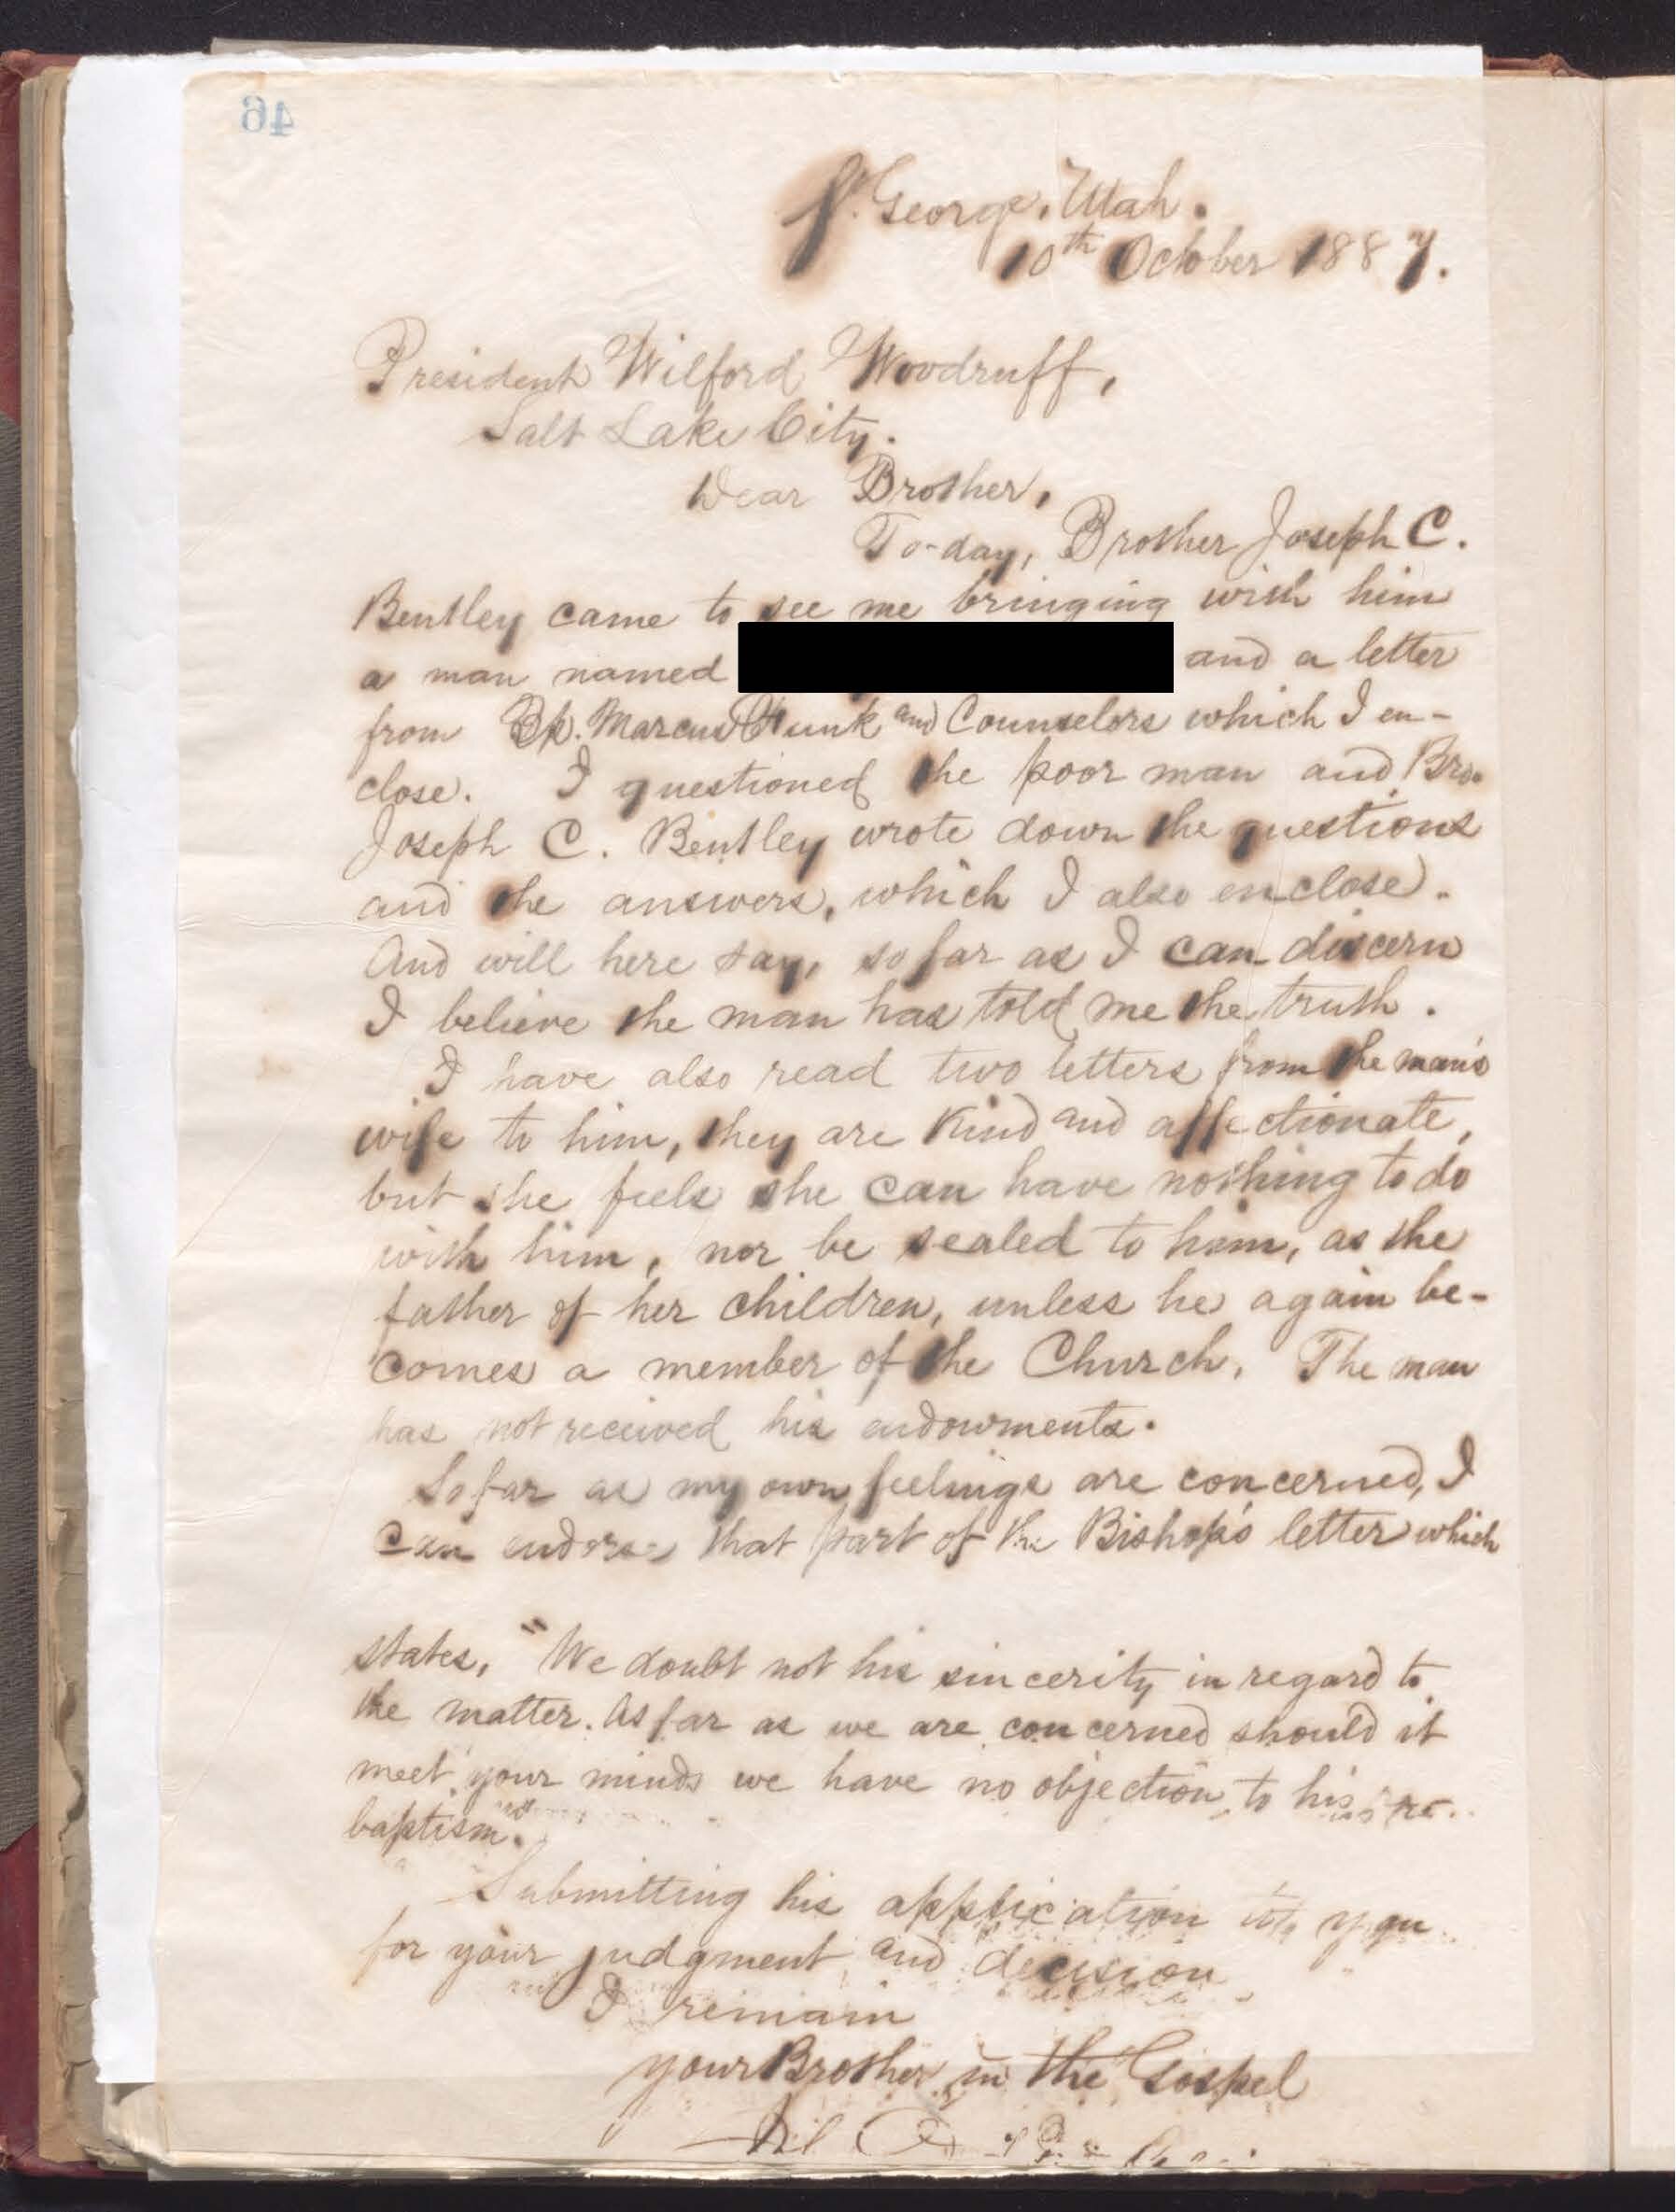 46
St. George, Utah.
10th October 1887.
President Wilford Woodruff,
Salt Lake City.
Dear Brother,
To-day, Brother Joseph C.
Bentley came to see me bringing with him
a man named and a letter
from Bp. Marcus Funk and Counselors which I en-
close. I questioned the poor man and Bro.
Joseph C. Bentley wrote down the questions
and the answers, which I also enclose.
And will here say, so far as I can discern
I believe the man has told me the truth.
I have also read two letters from the man's
wife to him, they are kind and affectionate,
but she feels she can have nothing to do
with him, nor be sealed to him, as the
father of her children, unless he again be-
comes a member of the Church. The man
has not received his endowments.
So far as my own feelings are concerned, I
can endorse that part of the Bishop's letter which
states, "We doubt not his sincerity in regard to
the matter. As far as we are concerned should it
meet your minds we have no objection to his re-
baptism."
Submitting his application to you
for your judgment and decision
I remain
your Brother in the Gospel